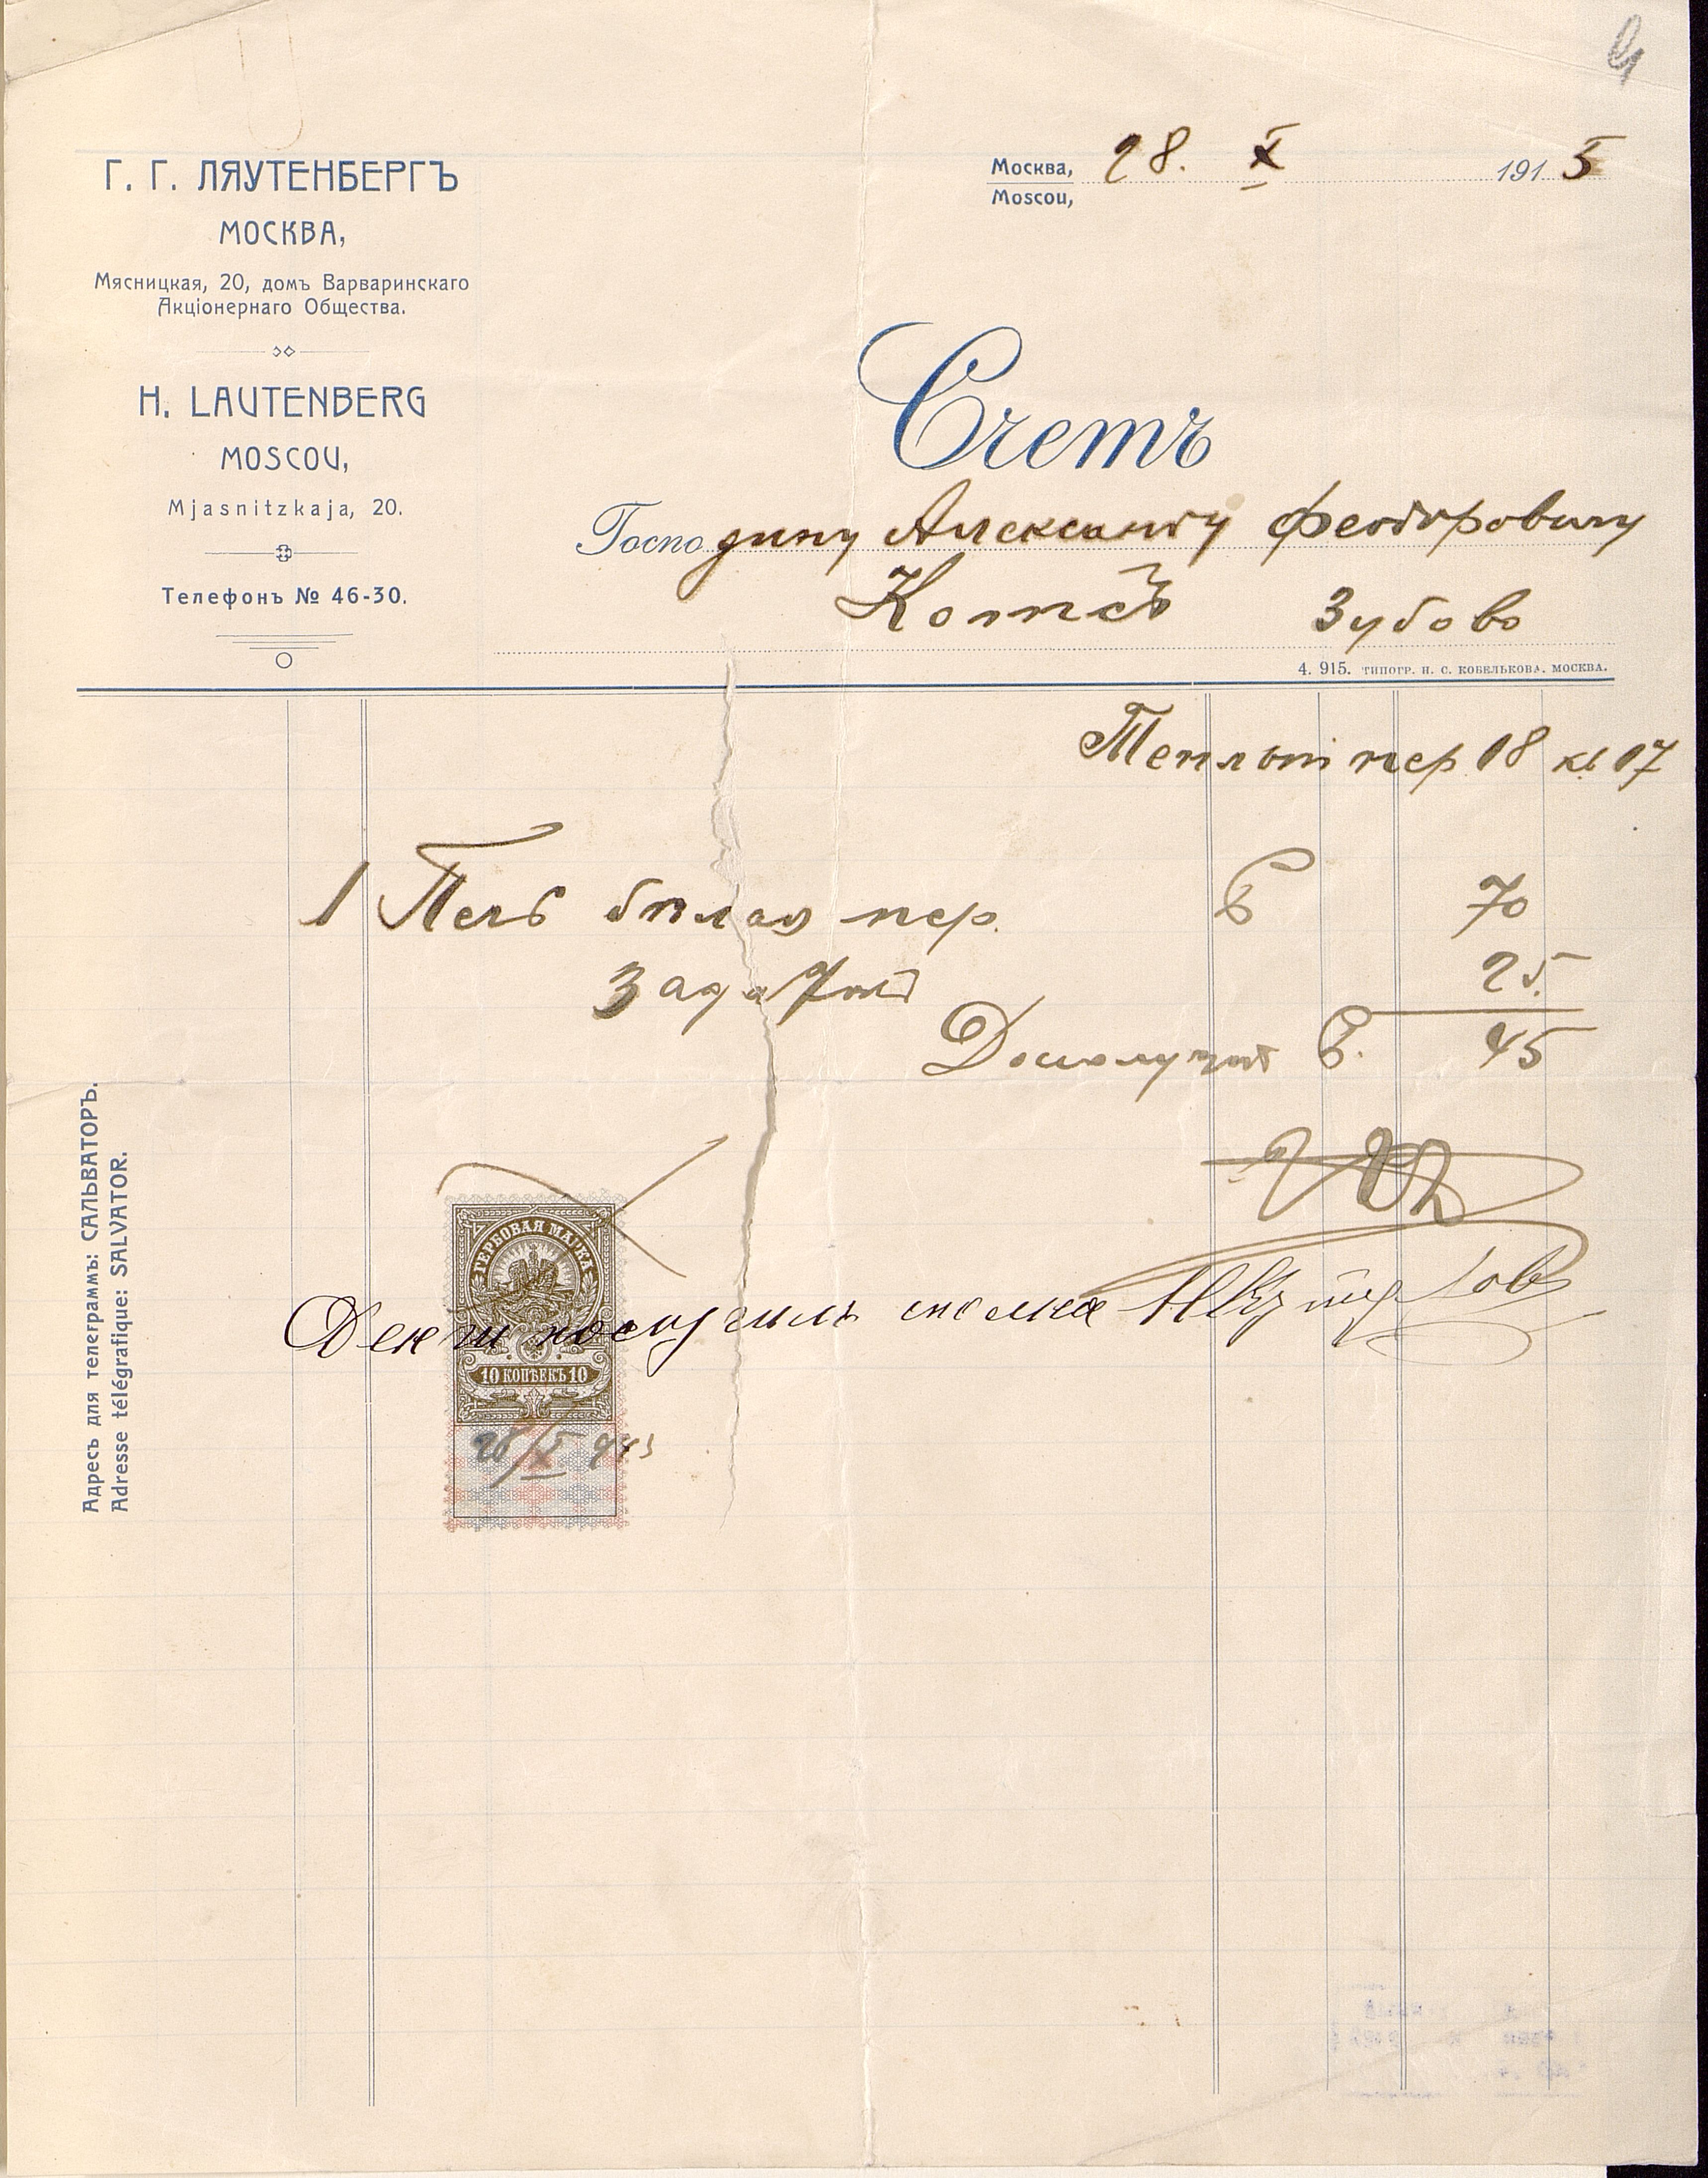 Г. Г. ЛЯУТЕНБЕРГЪ
МОСКВА,
Мясницкая, 20, домъ Варваринскаго
Акціонернаго Общества.
H. LAUTENBERG
MOSCOU,
Mjasnitzkaja, 20.
Телефонъ № 46-30.
Москва, 28. X 1915
Moscou,
Счетъ
Господину Александру Феодоровичу
Котсъ Зубово
4. 915. ТИПОГР. Н. С. КОБЕЛЬКОВА. МОСКВА.
Теплый пер 18 кв 17
1 Печь белая пер. 70
Задатокъ 25.
Дополучит 45
Деньги получилъ сполна
ГЕРБОВАЯ МАРКА
10 КОПѢЕКЪ 10
28/X 915
Адресъ для телеграммъ: САЛЬВАТОРЪ.
Adresse télégrafique: SALVATOR.